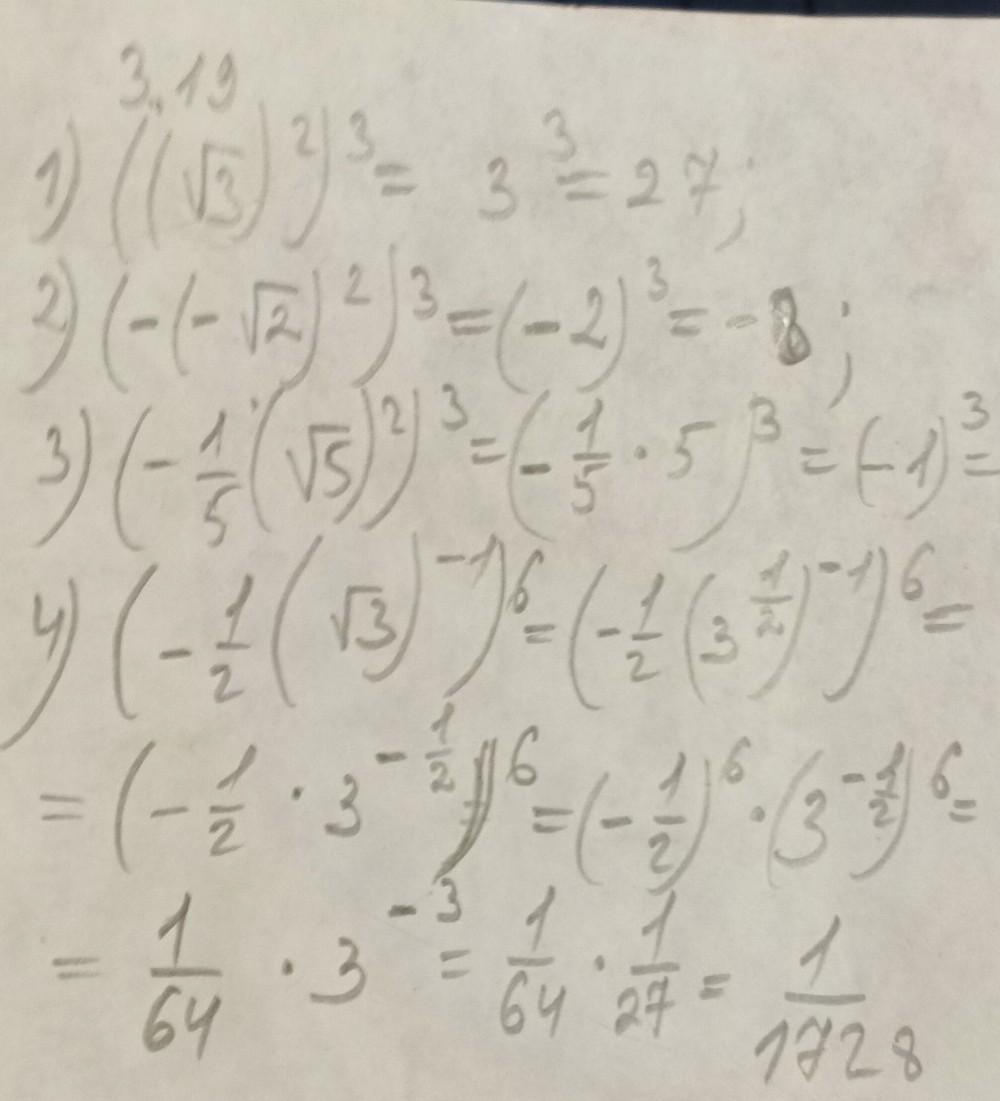 3.19
1) ((√3)²)³ = 3³ = 27;
2) (-(-√2)²)³ = (-2)³ = -8;
3) (-1/5(√5)²)³ = (-1/5 · 5)³ = (-1)³ =
4) (-1/2(√3)⁻¹)⁶ = (-1/2(3^(1/2))⁻¹)⁶ =
= (-1/2 · 3^(-1/2))⁶ = (-1/2)⁶ · (3^(-1/2))⁶ =
= 1/64 · 3⁻³ = 1/64 · 1/27 = 1/1728